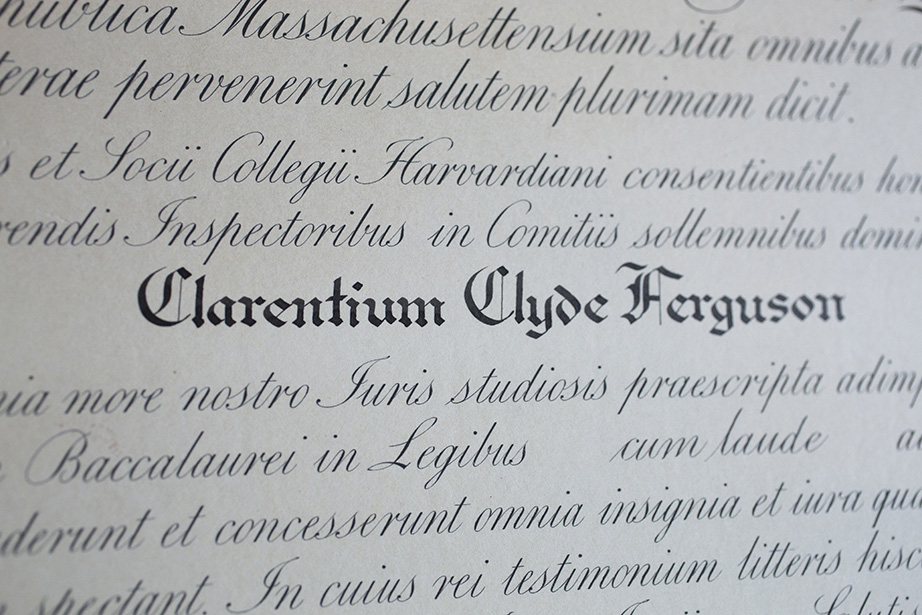 Massachusettensium sita omnibus
pervenerint salutem plurimam dicit.
et Socii Collegii Harvardiani consentientibus
Inspectoribus in Comitiis sollemnibus
Clarentium Clyde Ferguson
more nostro Iuris studiosis praescripta
Baccalaurei in Legibus cum laude
et concesserunt omnia insignia et iura
spectant. In cuius rei testimonium litteris